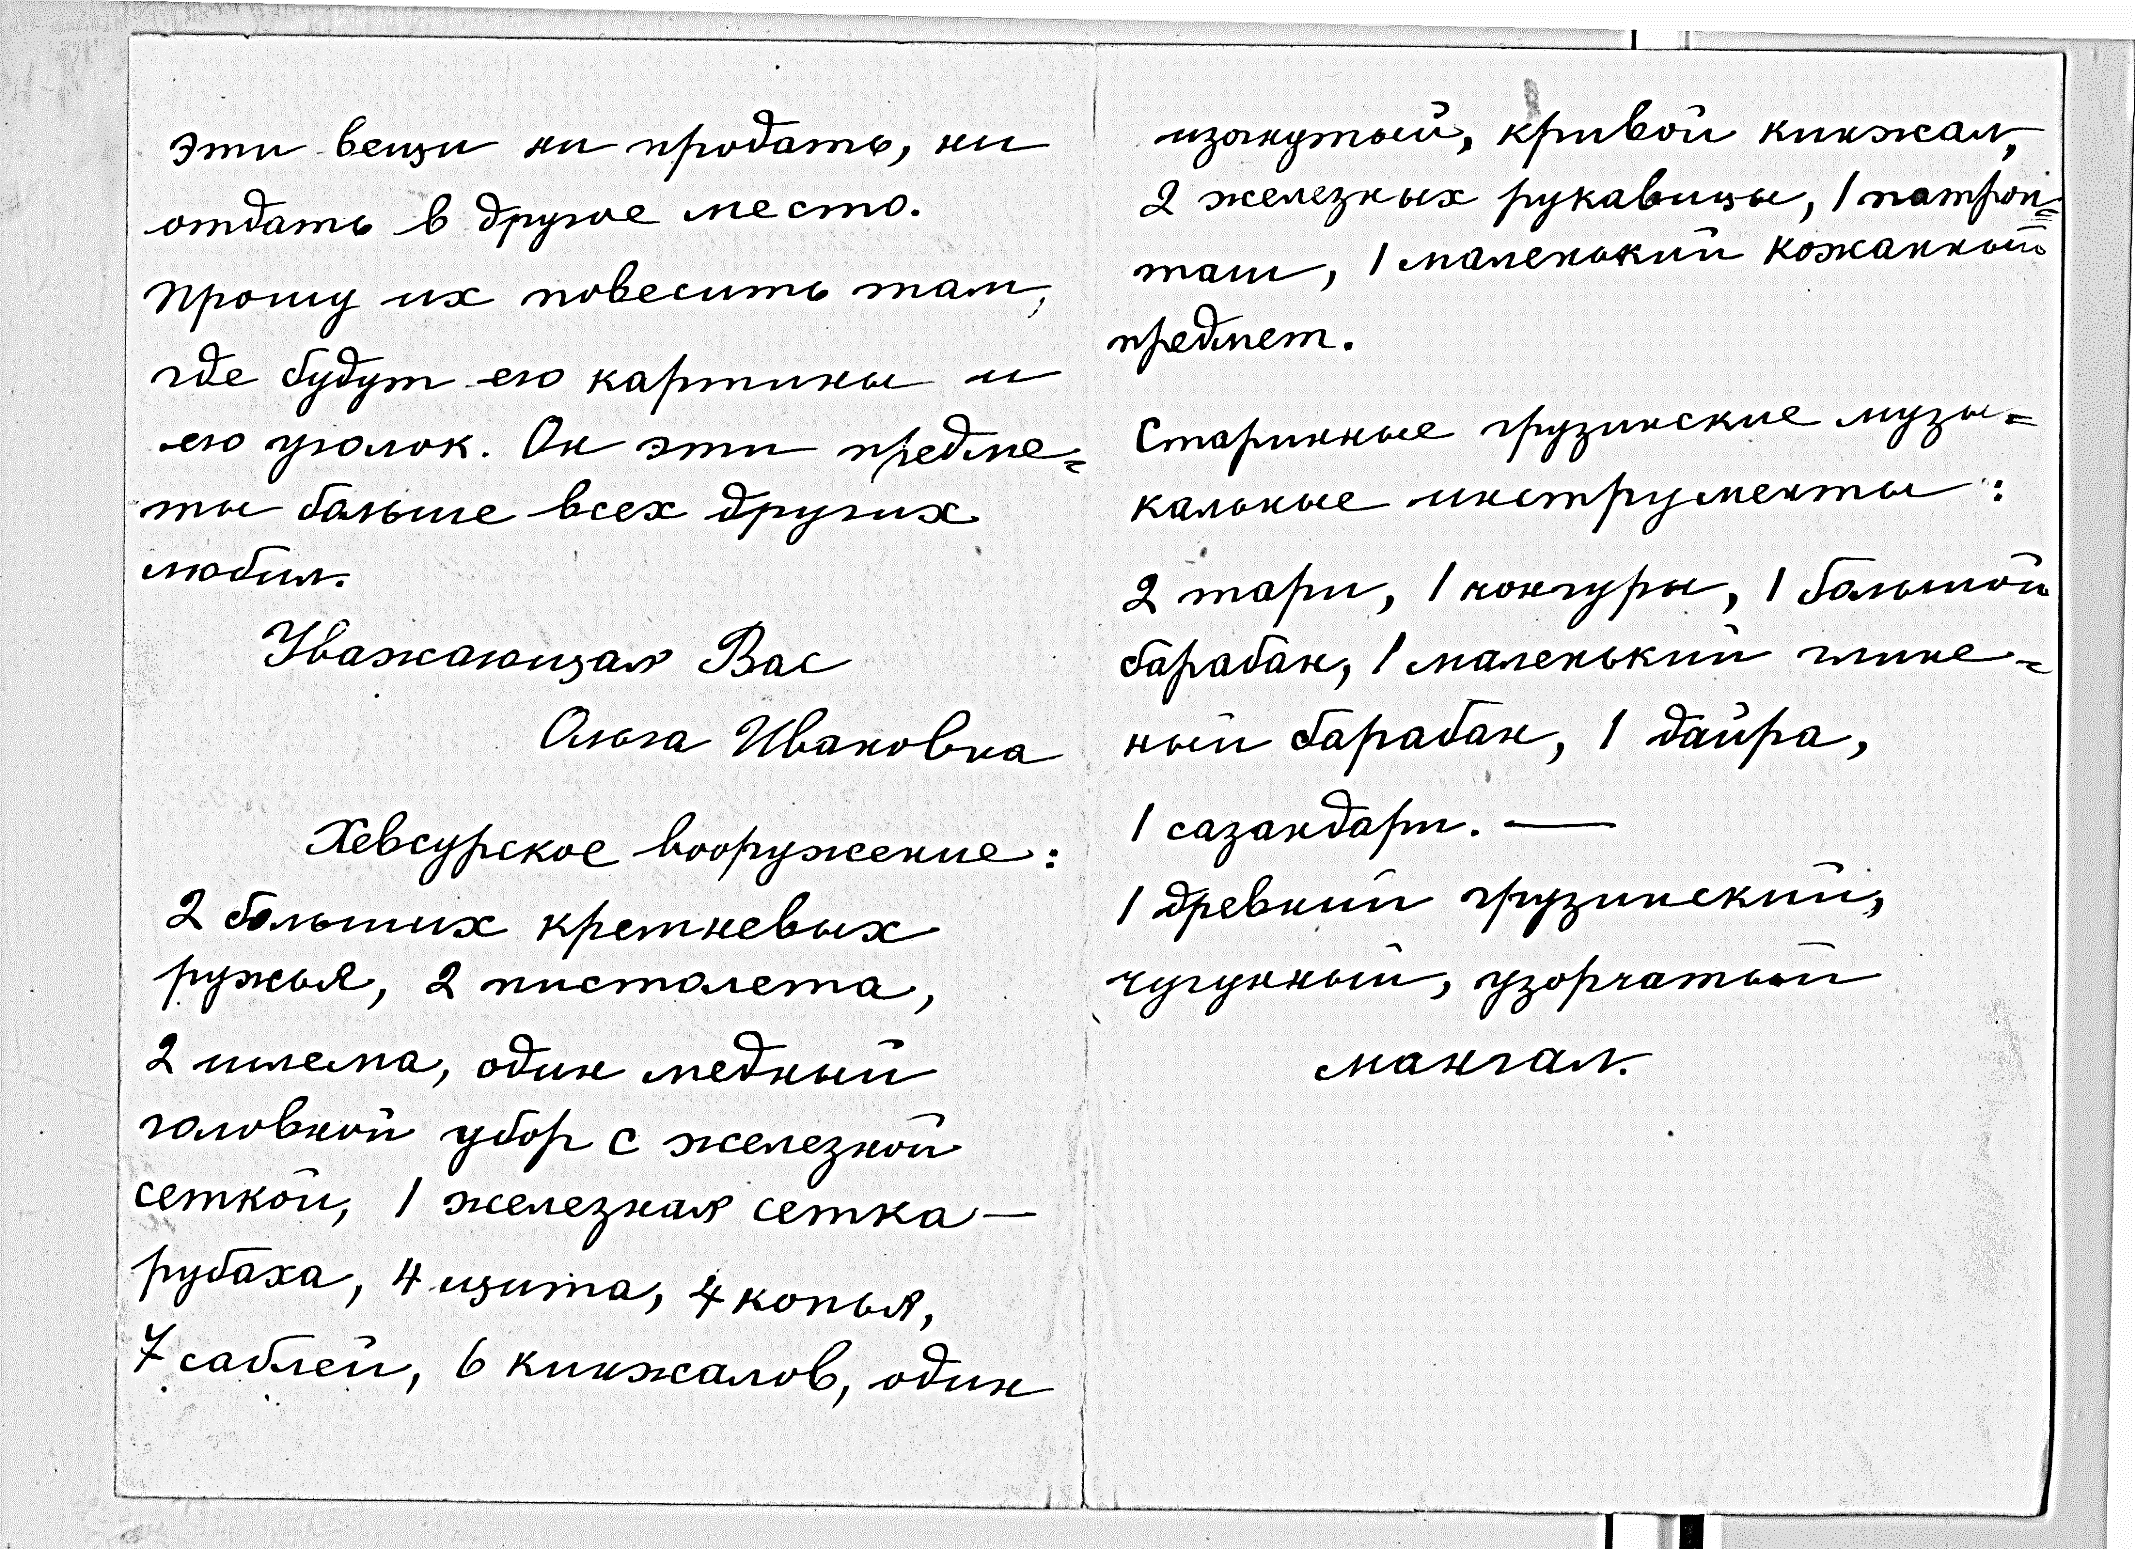 эти вещи ни продать, ни
отдать в другое место.
Прошу их повесить там,
где будут его картины и
его уголок. Он эти предме=
ты больше всех других
любил.
Уважающая Вас
Ольга Ивановна
Хевсурское вооружение:
2 больших кремневых
ружья, 2 пистолета,
2 шлема, один медный
головной убор с железной
сеткой, 1 железная сетка —
рубаха, 4 щита, 4 копья,
7 саблей, 6 кинжалов, один
изогнутый, кривой кинжал,
2 железных рукавицы, 1 патрон=
таш, 1 маленький кожанный
предмет.
Старинные грузинские музы=
кальные инструменты:
2 тари, 1 чонгуры, 1 большой
барабан, 1 маленький глине=
ный барабан, 1 дайра,
1 сазандари. —
1 древний грузинский,
чугунный, узорчатый
мангал.